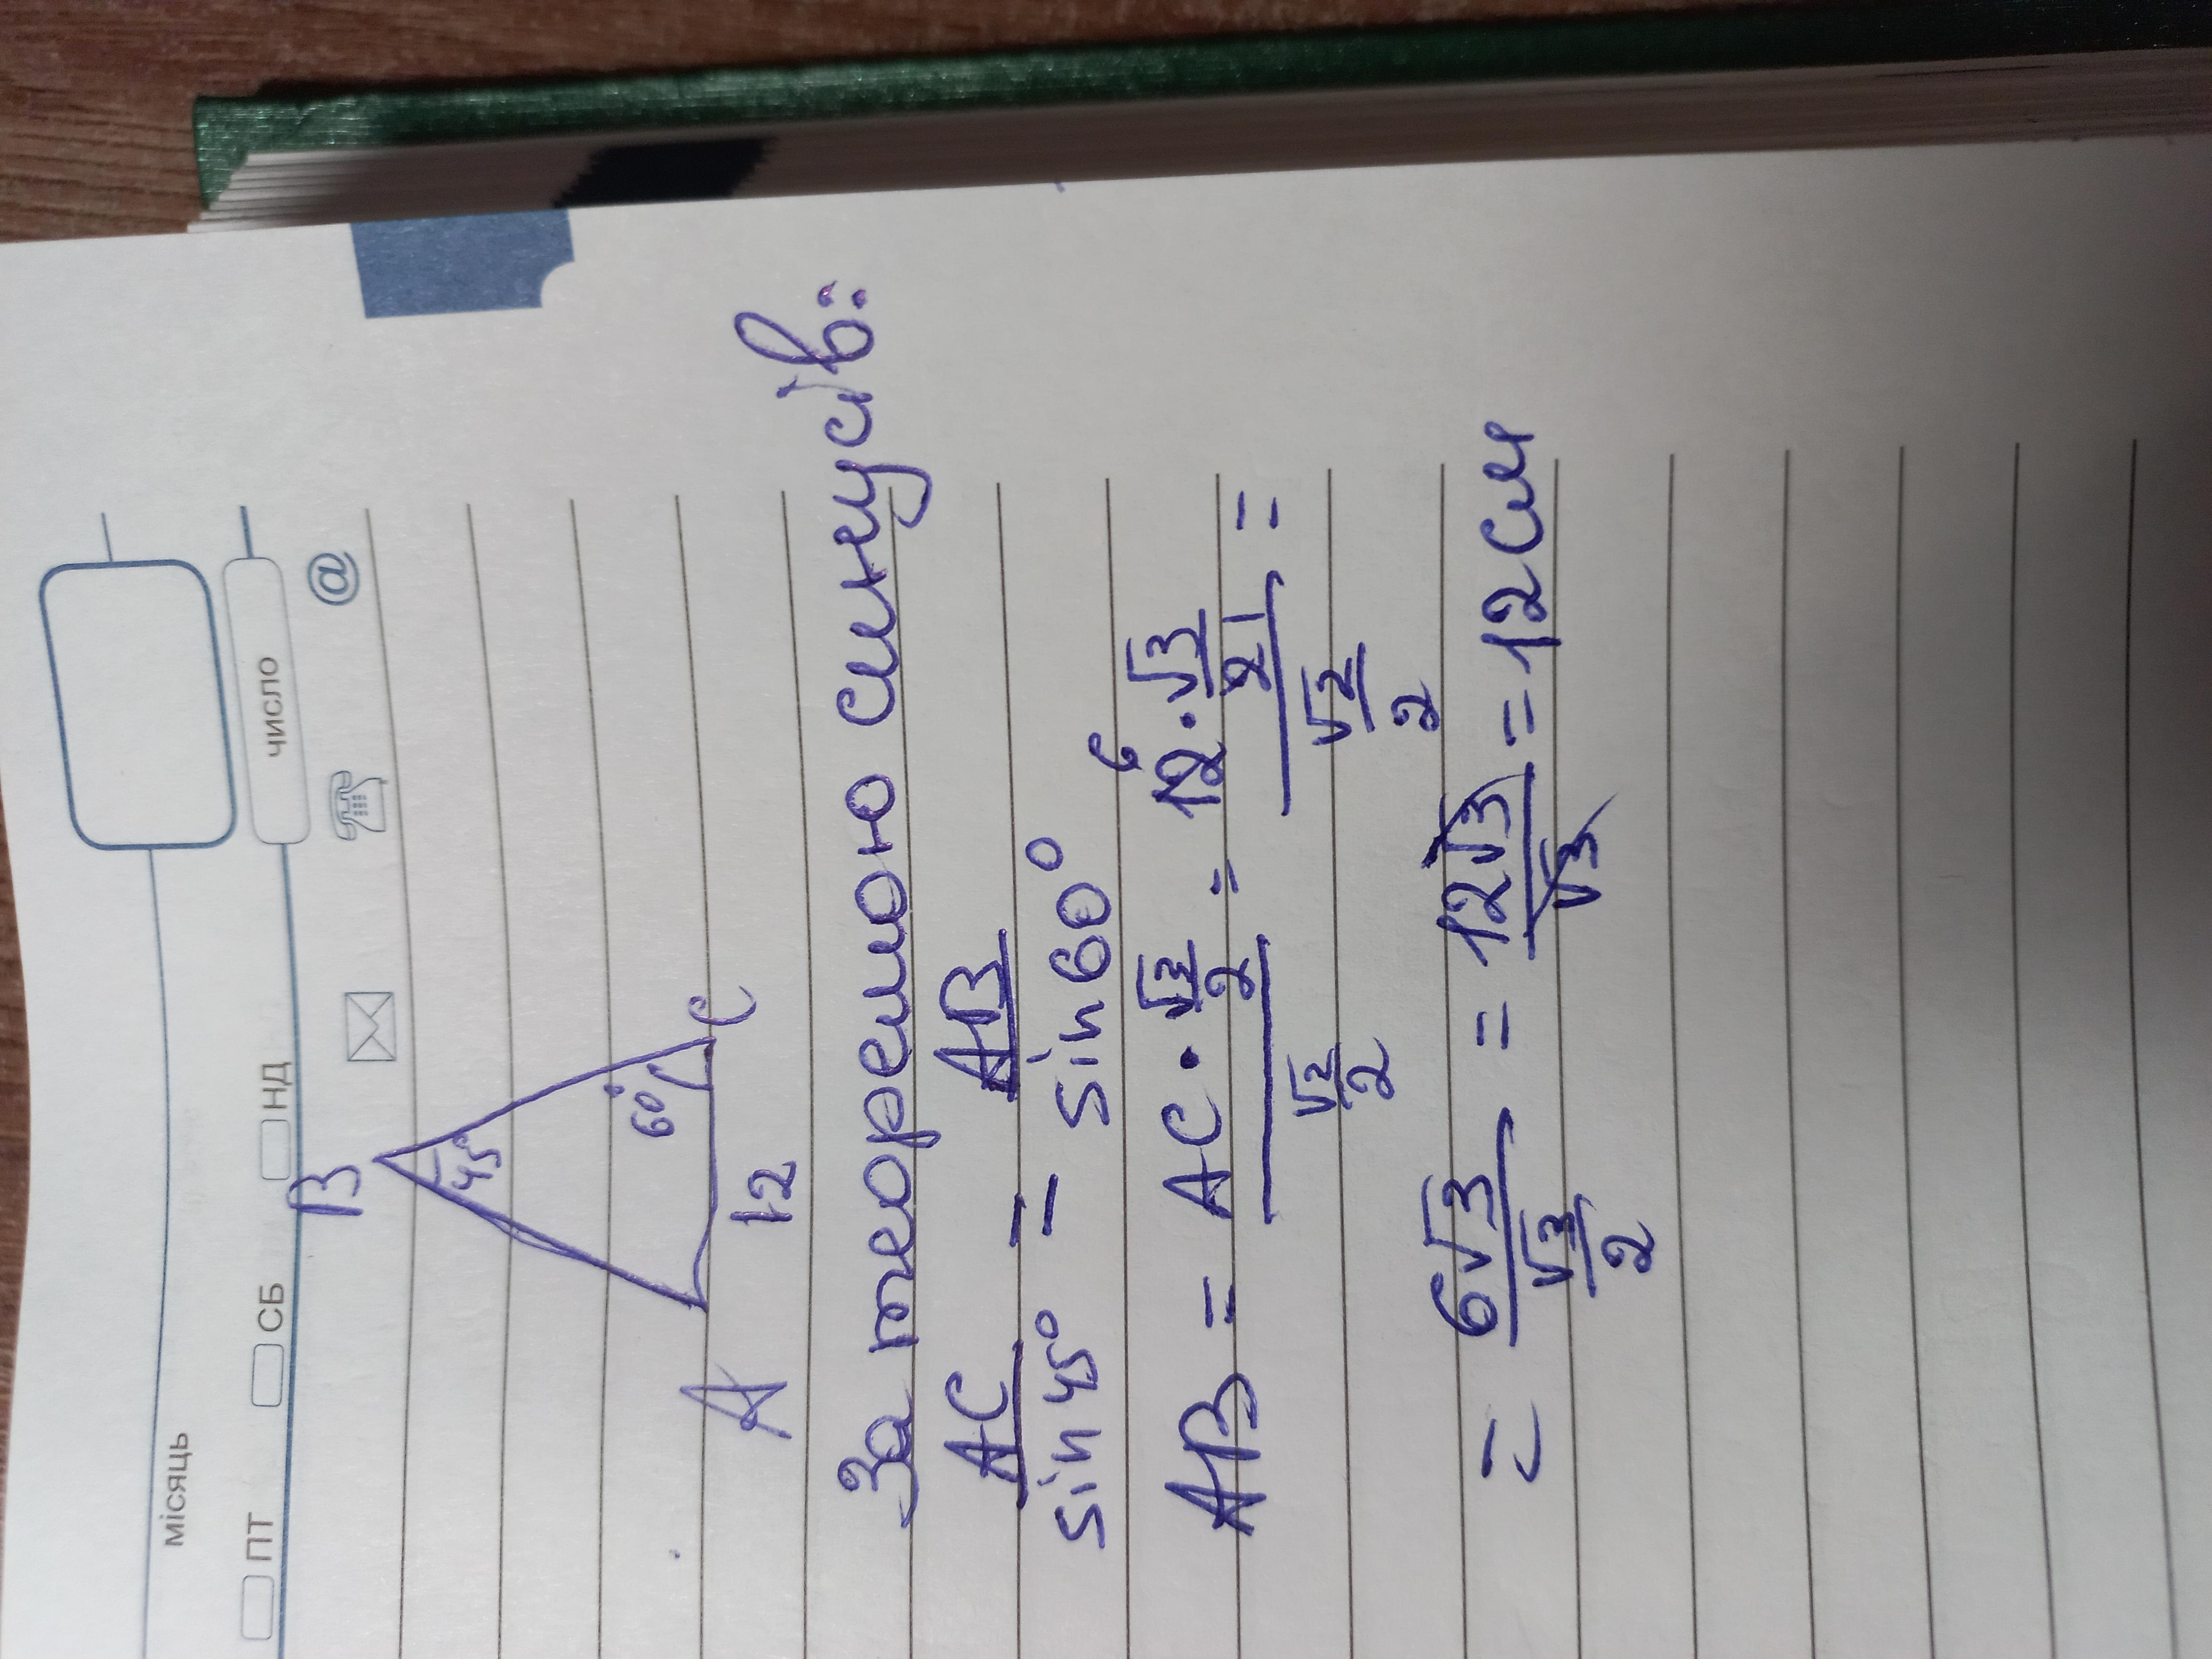 місяць
ПТ СБ НД число
@
B
45°
60°
A C
12
За теоремою синусів:
AC/sin45° = AB/sin60°
AB = (AC · √3/2)/(√2/2) = (12 · √3/2)/(√2/2) =
6 1
= 6√3/(√3/2) = 12√3/√3 = 12 см